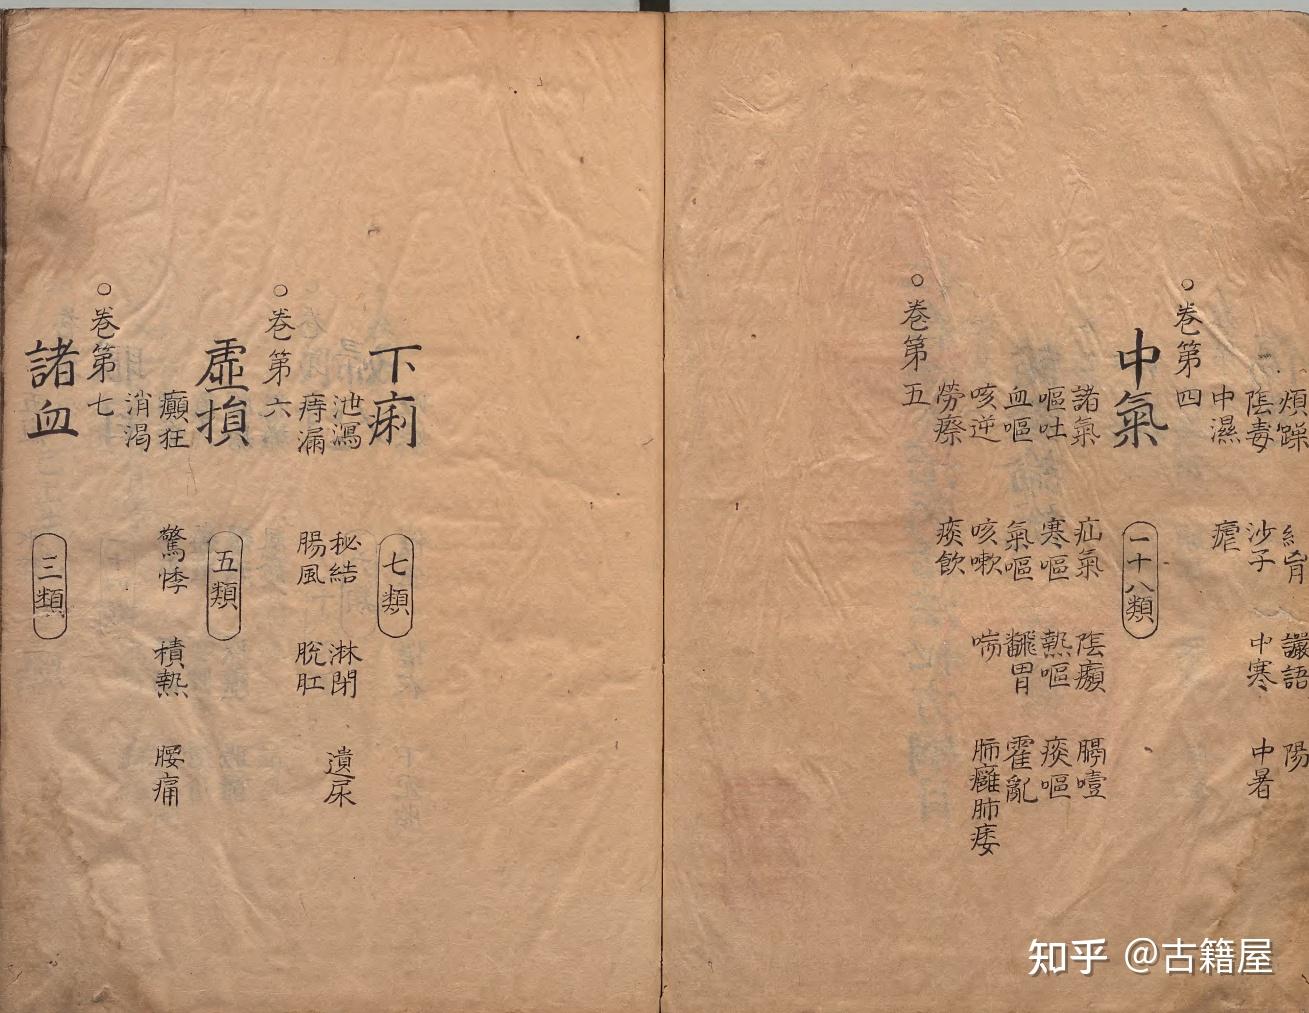 煩躁 讝語 陽
陰毒 沙子 中寒 中暑
中濕 瘧
○卷第四
中氣 一十八類
諸氣 疝氣 陰㿗 膈噎
嘔吐 寒嘔 熱嘔 痰嘔
血嘔 氣嘔 翻胃 霍亂
咳逆 咳嗽 喘 肺癰肺痿
勞瘵 痰飲
○卷第五
下痢 七類
泄瀉 秘結 淋閉 遺尿
痔漏 腸風 脫肛
○卷第六
虛損 五類
癲狂 驚悸 積熱 腰痛
消渴
○卷第七
諸血 三類
知乎 @古籍屋